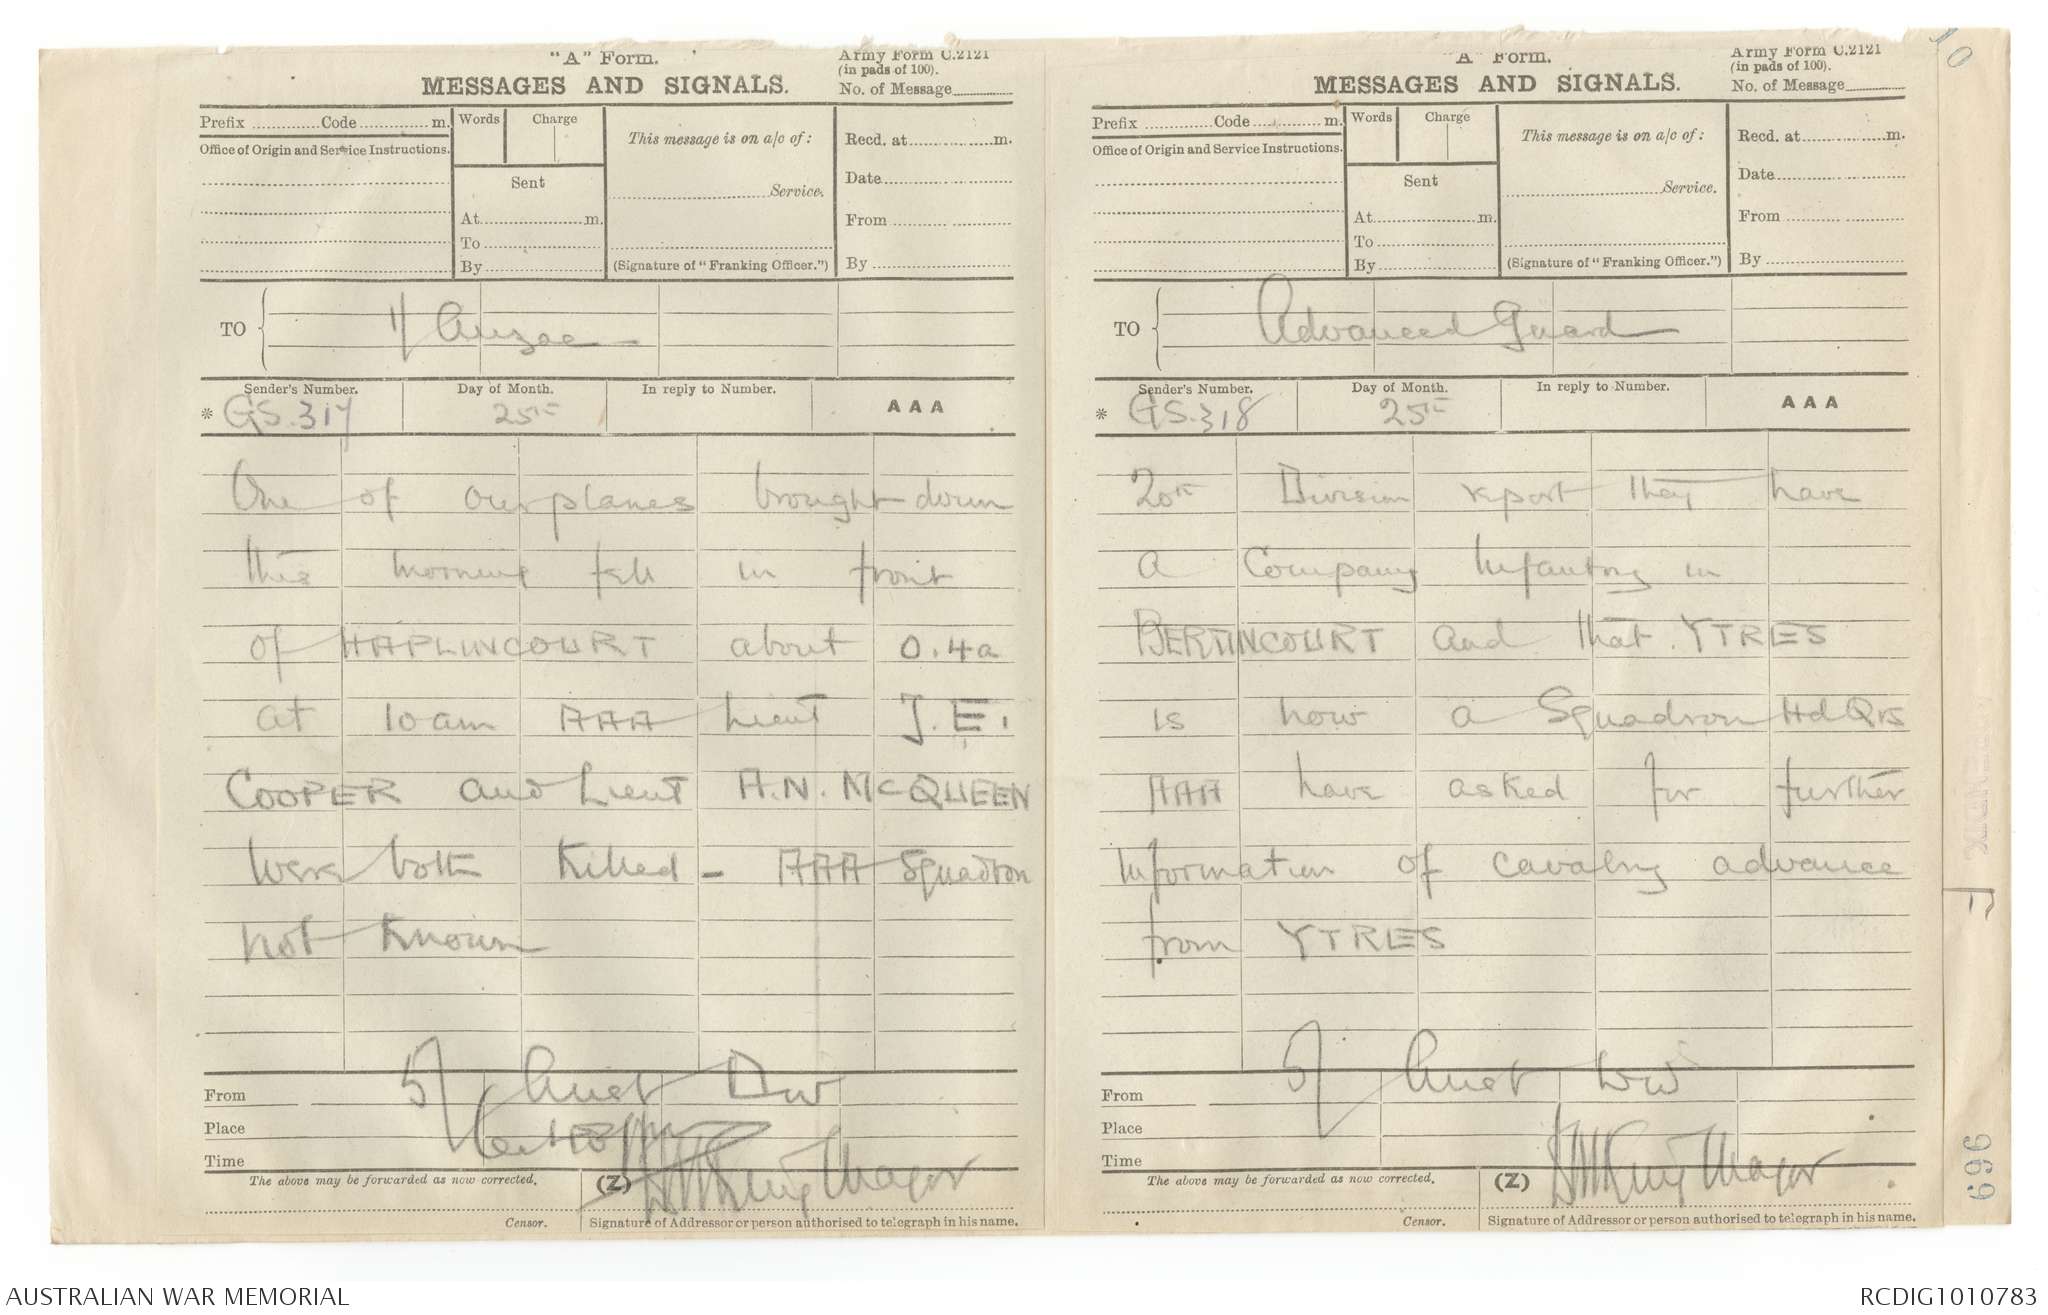 "A" Form.
MESSAGES AND SIGNALS.
Army Form C.2121
(in pads of 100).
No. of Message
Prefix Code m.
Words Charge
This message is on a/c of:
Recd. at m.
Office of Origin and Service Instructions.
Sent
Service.
Date
At m.
From
To
By
(Signature of "Franking Officer.")
By
TO
1/ Anzac
Sender's Number.
Day of Month.
In reply to Number.
AAA
* GS.317
25th
One of our planes brought down
this morning fell in front
of HAPLINCOURT about O.4a
at 10 am AAA Lieut J.E.
COOPER and Lieut A.N. McQUEEN
were both killed - AAA Squadron
not known
From 5/ Aust Div
Place
Time
The above may be forwarded as now corrected.
(Z)
Major
Censor.
Signature of Addressor or person authorised to telegraph in his name.
"A" Form.
MESSAGES AND SIGNALS.
Army Form C.2121
(in pads of 100).
No. of Message
10
Prefix Code m.
Words Charge
This message is on a/c of:
Recd. at m.
Office of Origin and Service Instructions.
Sent
Service.
Date
At m.
From
To
By
(Signature of "Franking Officer.")
By
TO
Advanced Guard
Sender's Number.
Day of Month.
In reply to Number.
AAA
* GS.318
25th
20th Division report they have
a Company Infantry in
BERTINCOURT and that YTRES
is now a Squadron Hd Qrs
AAA have asked for further
information of cavalry advance
from YTRES
From 5/ Aust Div
Place
Time
The above may be forwarded as now corrected.
(Z)
Major
Censor.
Signature of Addressor or person authorised to telegraph in his name.
696
AUSTRALIAN WAR MEMORIAL
RCDIG1010783